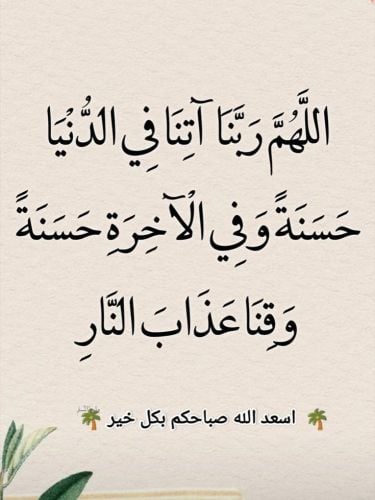 اللَّهُمَّ رَبَّنَا آتِنَا فِي الدُّنْيَا
حَسَنَةً وَفِي الْآخِرَةِ حَسَنَةً
وَقِنَا عَذَابَ النَّارِ
🌴 اسعد الله صباحكم بكل خير 🌴